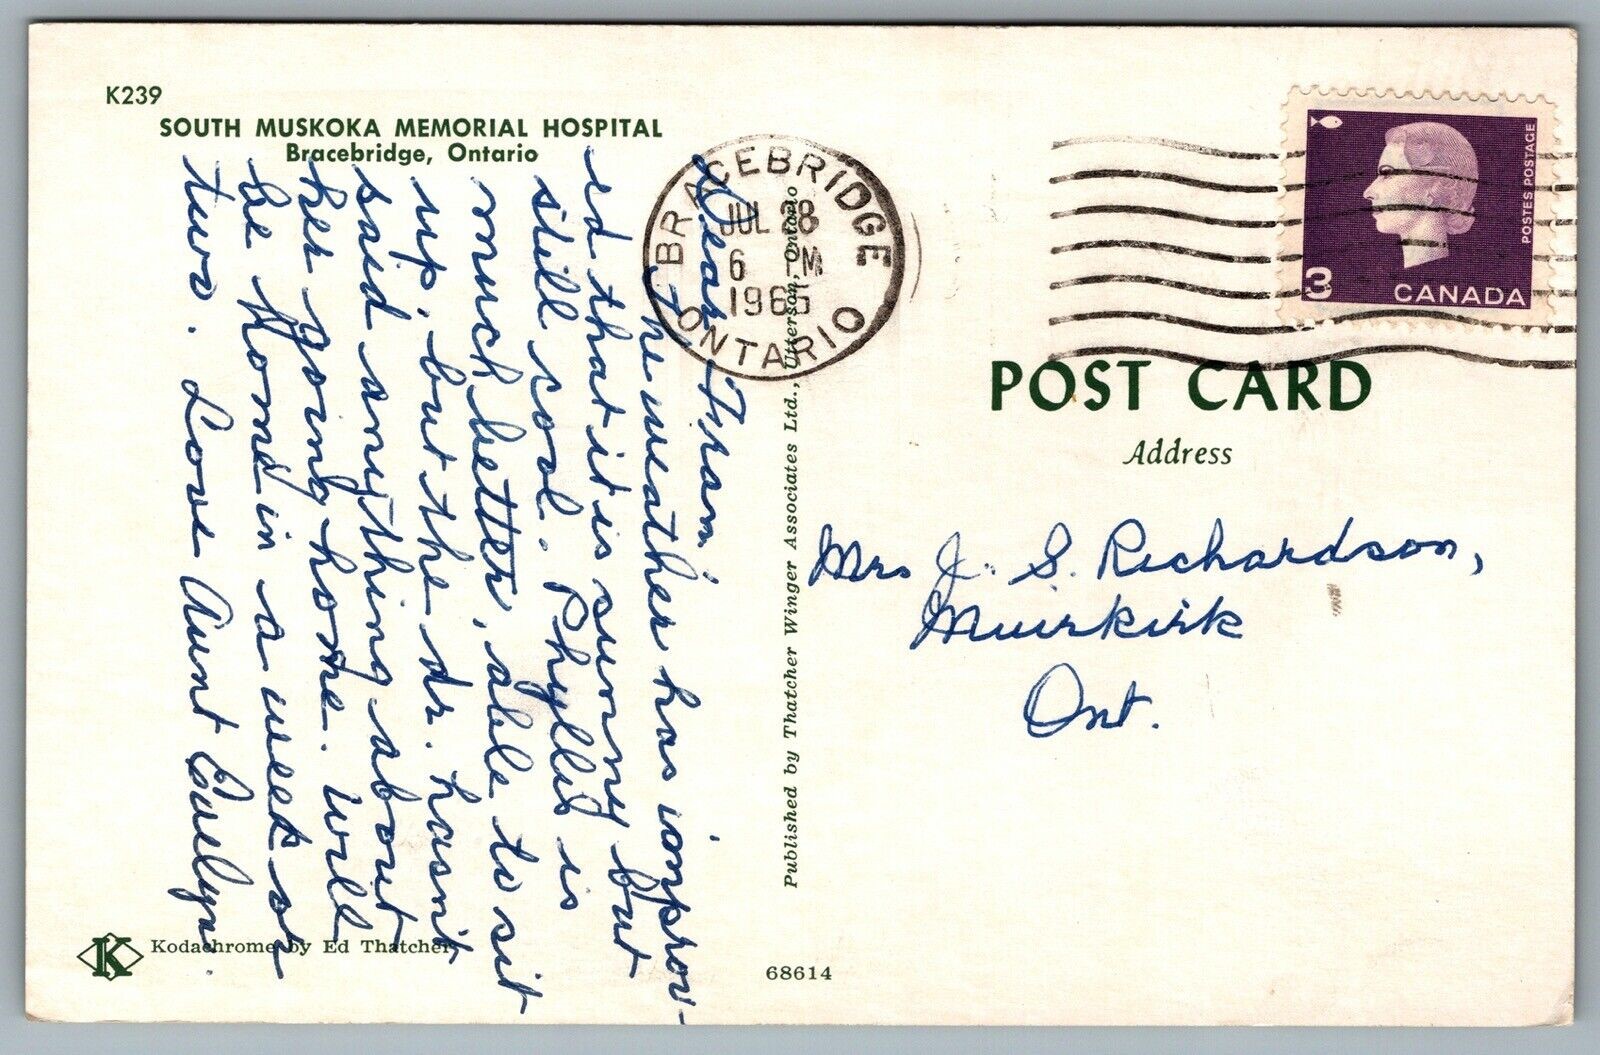 K239
SOUTH MUSKOKA MEMORIAL HOSPITAL
Bracebridge, Ontario
Dear Fram,
The weather has improv-
ed that it is sunny but
still cool. Phyllis is
much better, able to sit
up, but the dr. hasn't
said anything about
her going home. Will
be Home in a week or
two. Love Aunt Evelyn.
Kodachrome by Ed Thatcher
K
68614
Published by Thatcher Winger Associates Ltd., Utterson, Ontario
BRACEBRIDGE
JUL 28
6 PM
1965
ONTARIO
POSTES POSTAGE
3
CANADA
POST CARD
Address
Mrs J. S. Richardson,
Muirkirk
Ont.